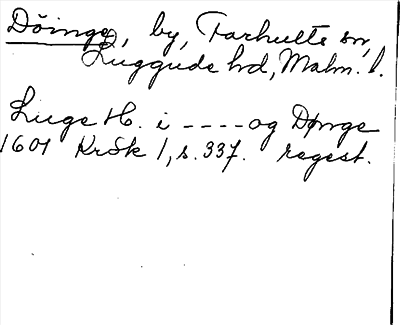 Döinge, by, Farhults sn,
Luggude hd, Malm. l.
Luge H. i ---- og Dønge
1601 KrSk 1, s. 337. regest.